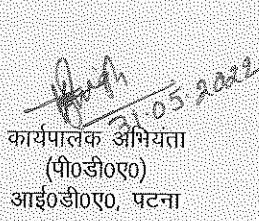 31.05.2022
कार्यपालक अभियंता
(पी०डी०ए०)
आई०डी०ए०, पटना